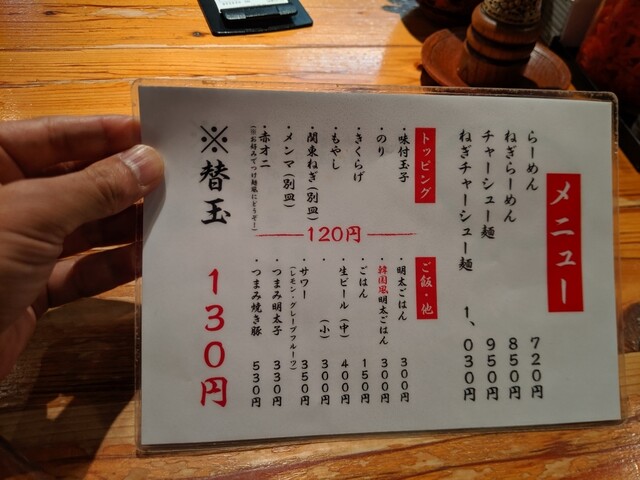 メニュー
らーめん 720円
ねぎらーめん 850円
チャーシュー麺 950円
ねぎチャーシュー麺 1、030円
トッピング
・味付玉子
・のり
・きくらげ
・もやし
・関東ねぎ(別皿)
・メンマ(別皿)
・赤オニ
(※お好みでつけ麺風にどうぞ!)
120円
ご飯・他
・明太ごはん 300円
・韓国風明太ごはん 300円
・ごはん 150円
・生ビール(中) 400円
・ (小) 300円
・サワー 350円
(レモン・グレープフルーツ)
・つまみ明太子 330円
・つまみ焼き豚 530円
※替玉 130円